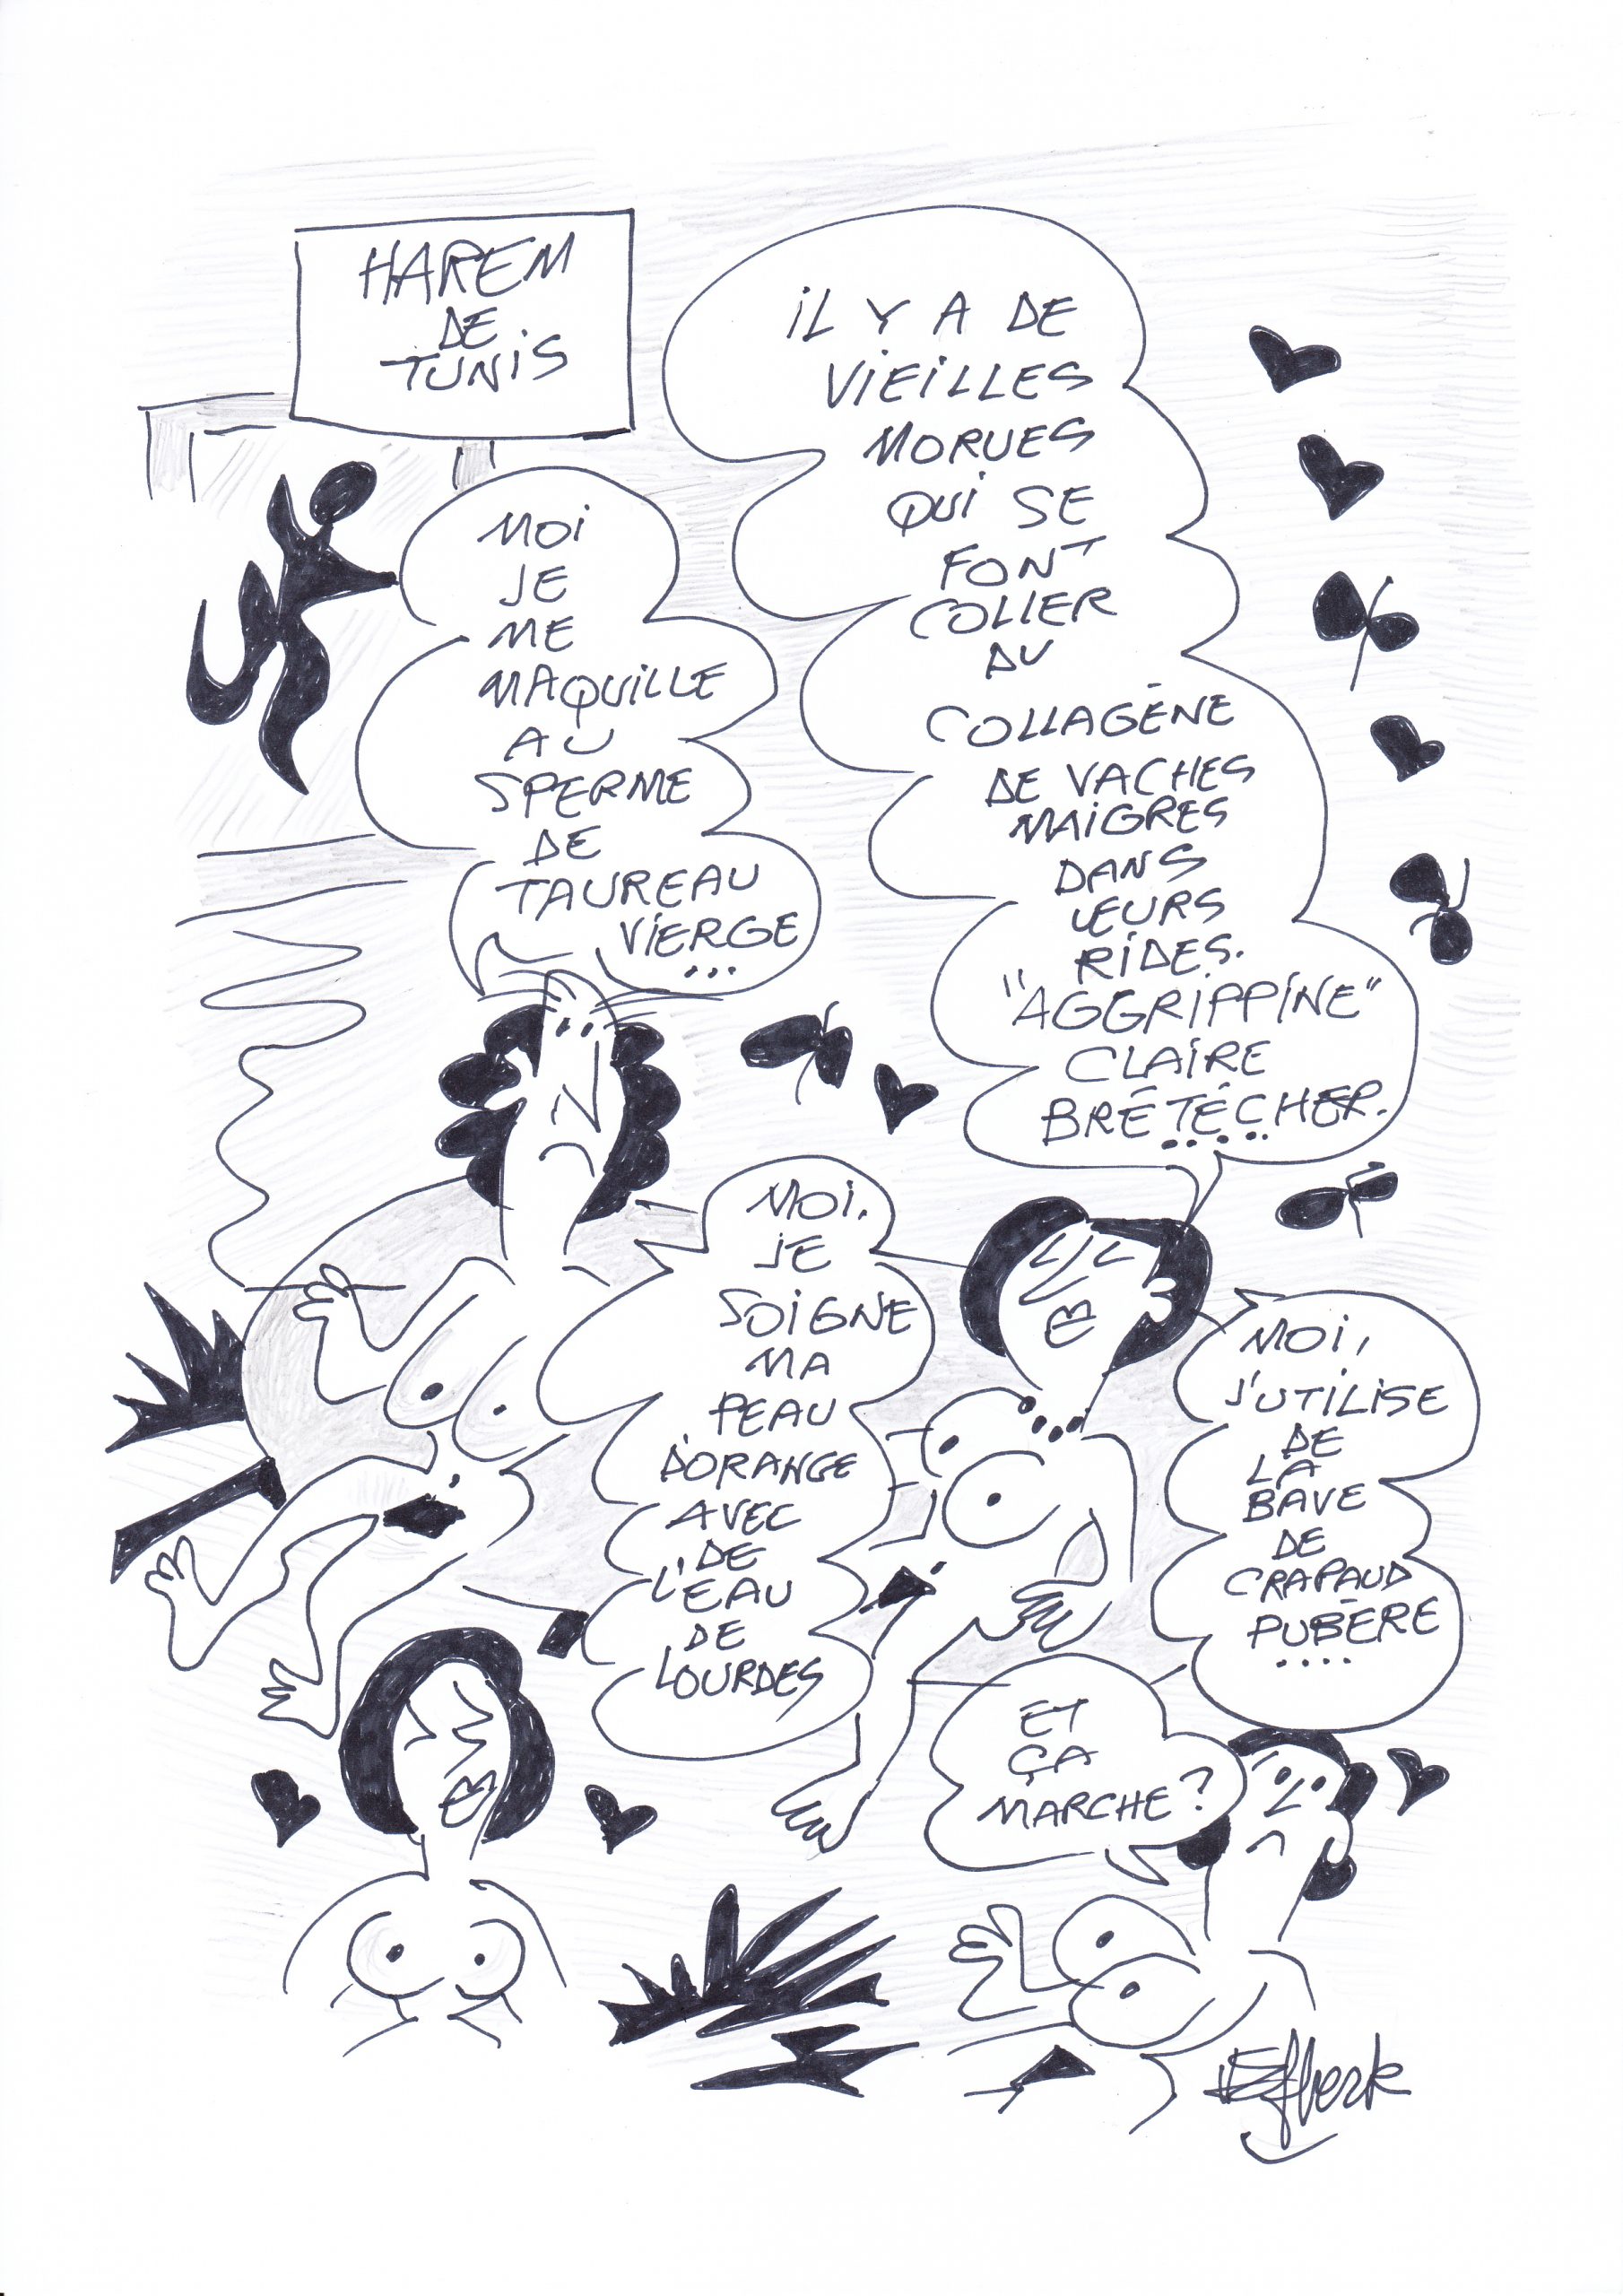 HAREM
DE
TUNIS
IL Y A DE
VIEILLES
MORUES
QUI SE
FONT
COLLER
DU
COLLAGÈNE
DE VACHES
MAIGRES
DANS
LEURS
RIDES.
"AGGRIPPINE"
CLAIRE
BRÉTÉCHER.
.....
MOI
JE
ME
MAQUILLE
AU
SPERME
DE
TAUREAU
VIERGE
...
MOI,
JE
SOIGNE
MA
PEAU
D'ORANGE
AVEC
DE
L'EAU
DE
LOURDES
MOI,
J'UTILISE
DE
LA
BAVE
DE
CRAPAUD
PUBÈRE
....
ET
ÇA
MARCHE?